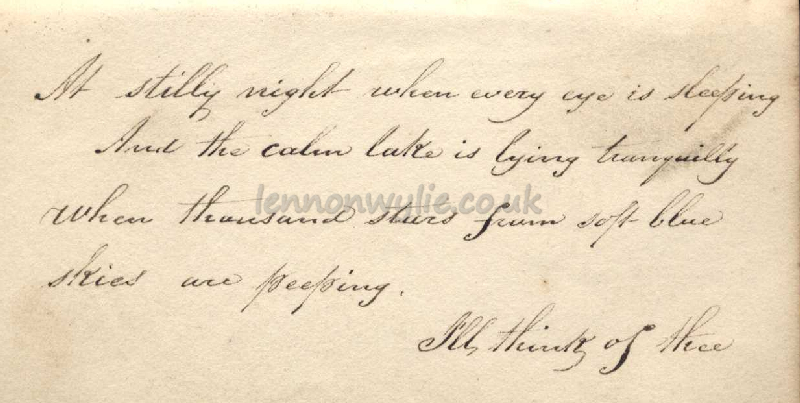 At stilly night when every eye is sleeping
And the calm lake is lying tranquilly
lennonwylie.co.uk
When thousand stars from soft blue
skies are peeping.
I'll think of thee